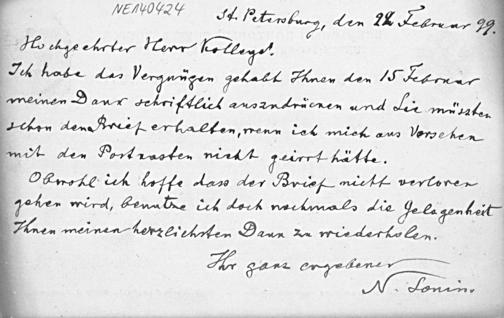 NE140424
St. Petersburg, den 22 Februar 99.
Hochgeehrter Herr Kollege!
Ich habe das Vergnügen gehabt Ihnen den 15 Februar
meinen Dank schriftlich auszudrücken und Sie müssten
schon den Brief erhalten, wenn ich mich aus Versehen
mit den Postkasten nicht geirrt hätte.
Obwohl ich hoffe dass der Brief nicht verloren
gehen wird, benutze ich doch nochmals die Gelegenheit
Ihnen meinen herzlichsten Dank zu wiederholen.
Ihr ganz ergebener
N. Sonin.